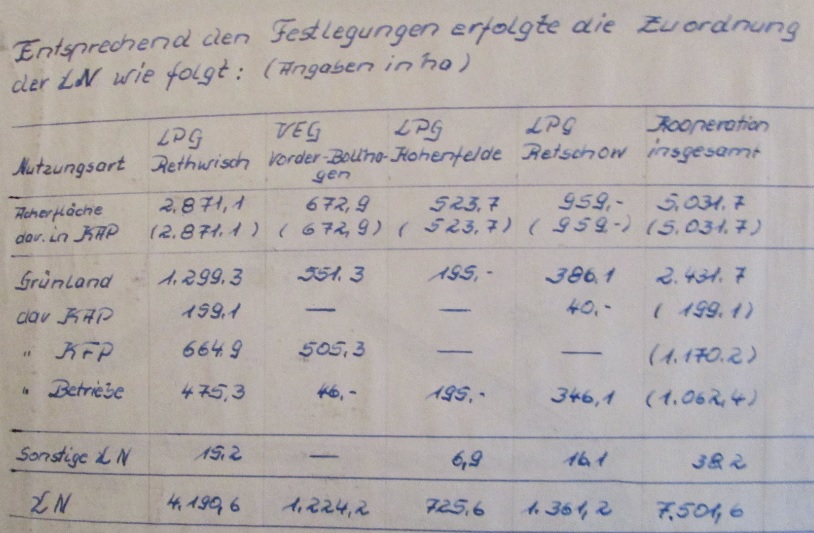 Entsprechend den Festlegungen erfolgte die Zuordnung
der LN wie folgt: (Angaben in ha)
Nutzungsart LPG Rethwisch VEG Vorder-Bollha-gen LPG Hohenfelde LPG Retschow Kooperation insgesamt
Ackerfläche 2.871,1 672,9 523,7 959,- 5.031.7
dav. in KAP (2.871.1) (672,9) (523,7) (959-) (5.031.7)
Grünland 1.299.3 551.3 195,- 386.1 2.431.7
dav KAP 159,1 — — 40,- (199.1)
" KFP 664.9 505,3 — — (1.170.2)
" Betriebe 475,3 46,- 195,- 346,1 (1.062,4)
Sonstige LN 15.2 — 6,9 16.1 38.2
LN 4.190,6 1.224,2 725,6 1.361,2 7.501,6